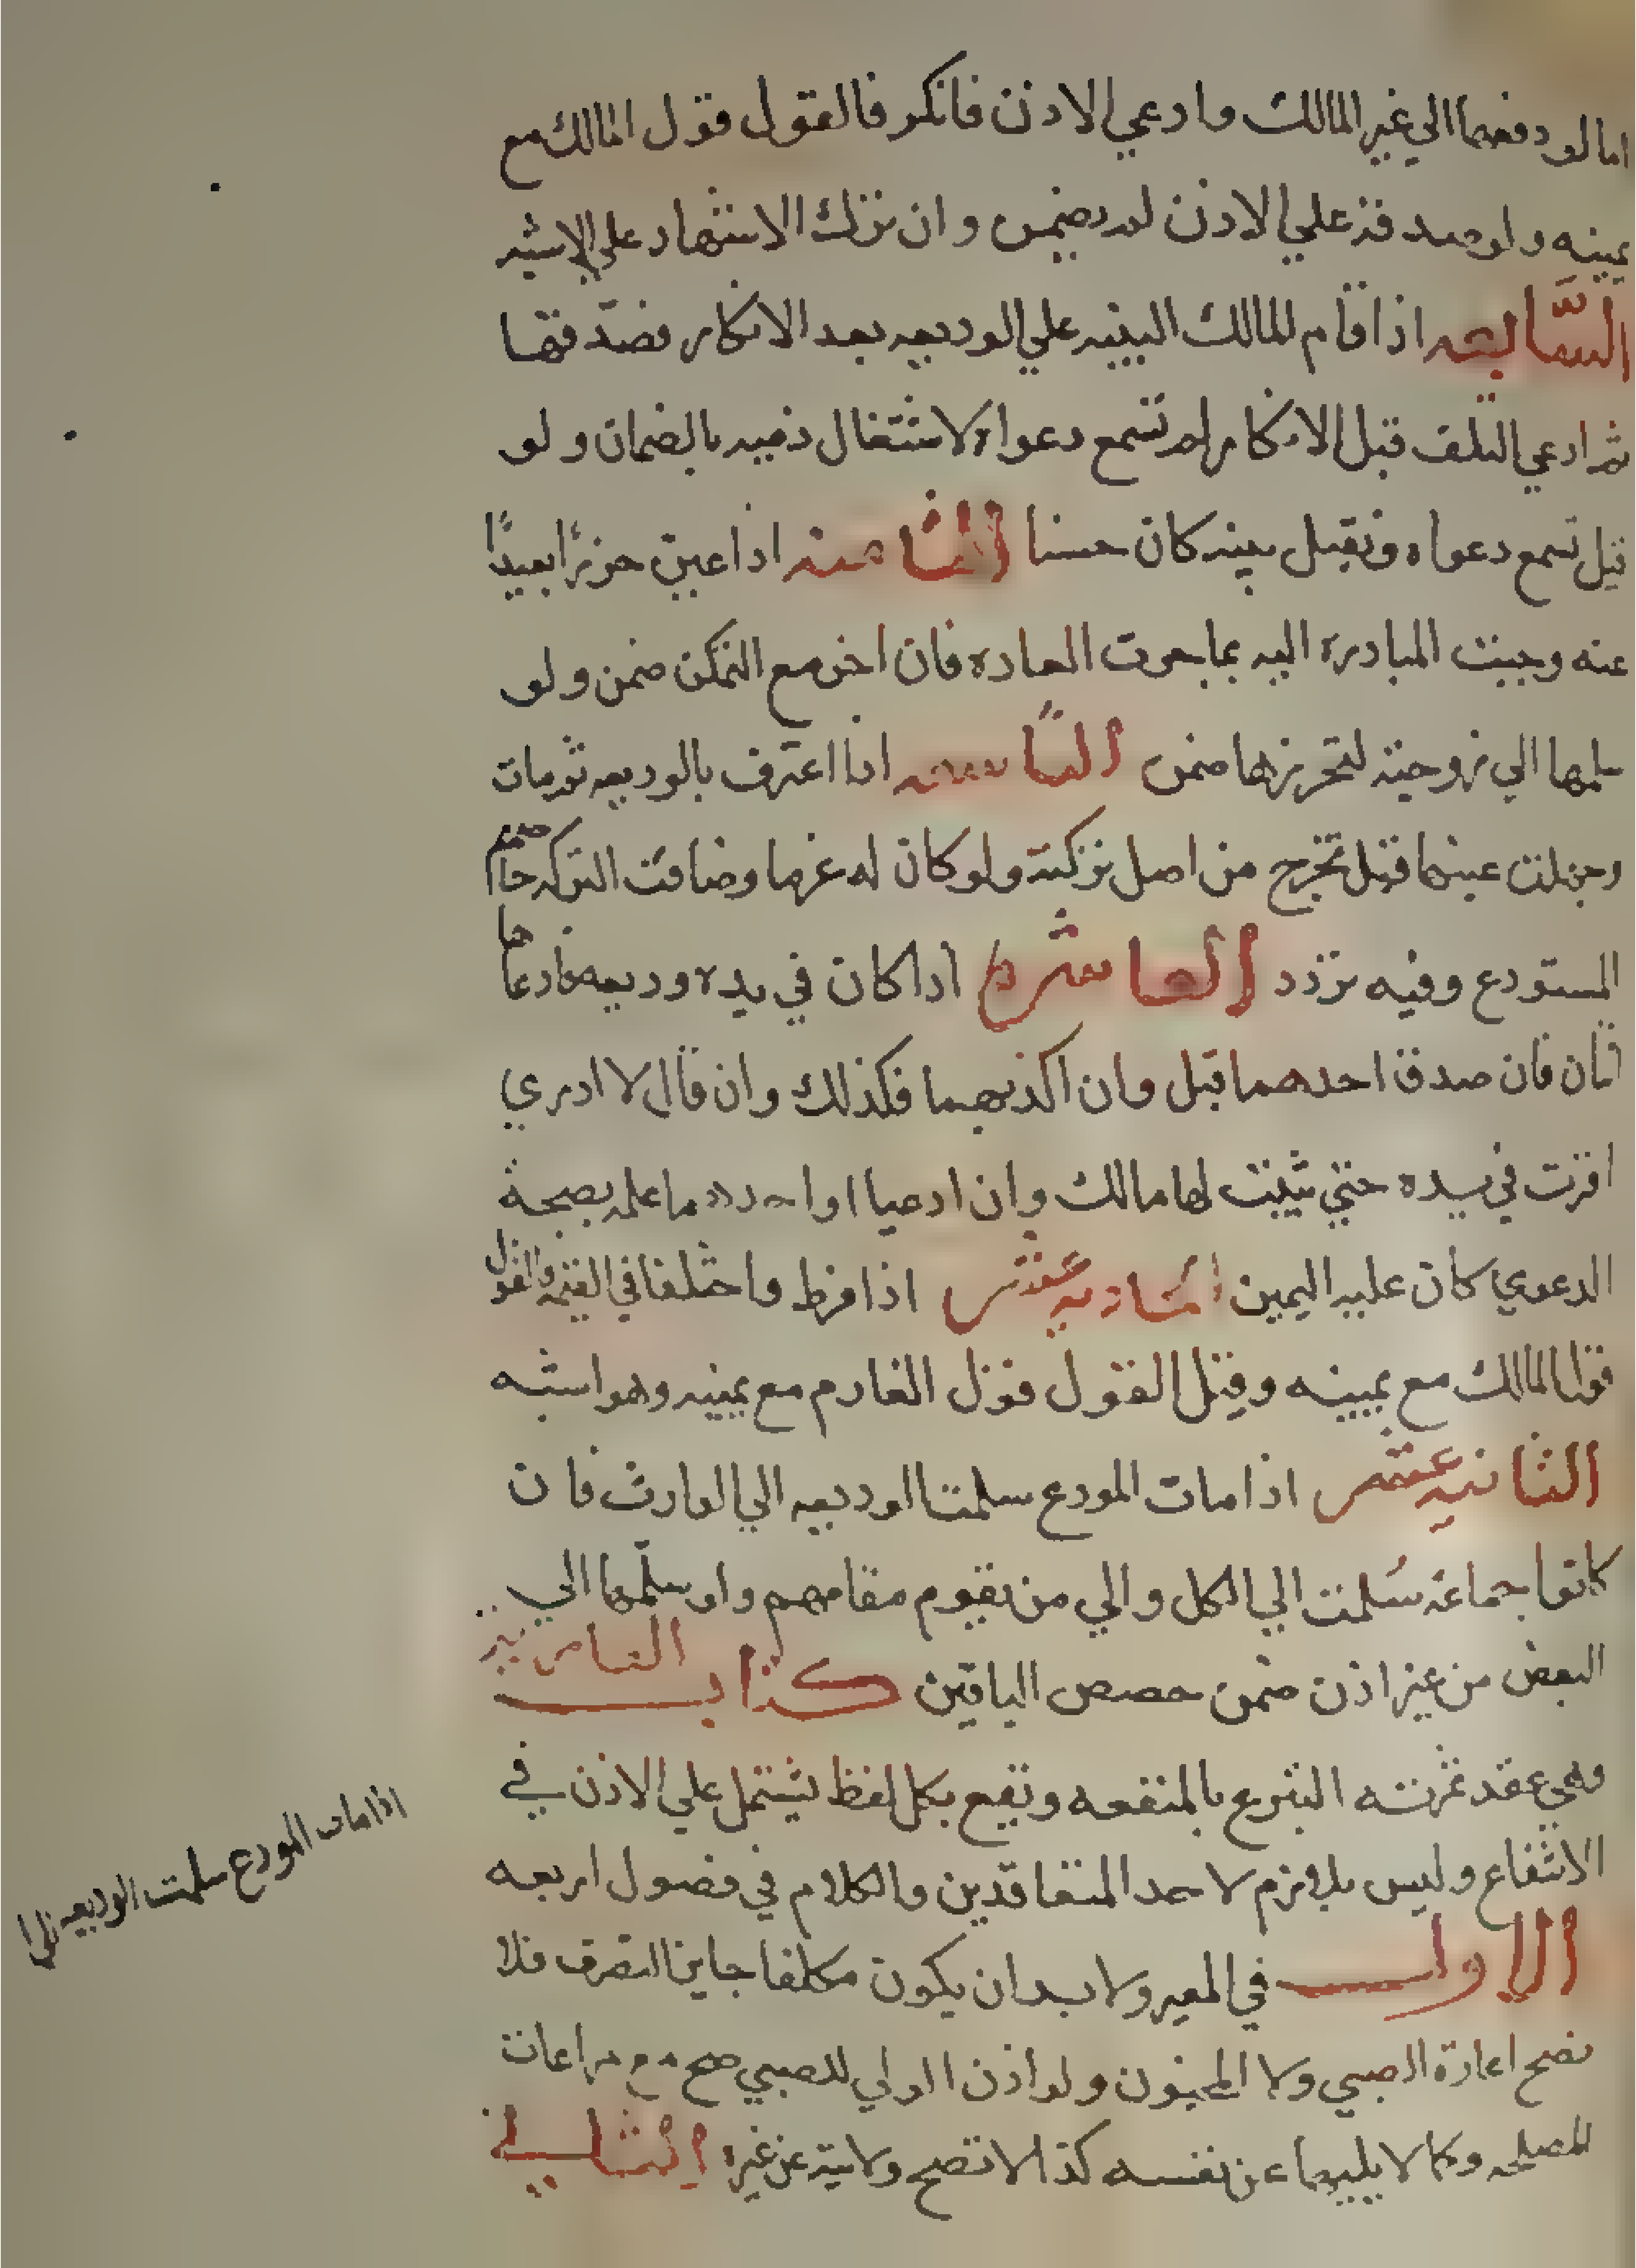 اما لو دفعها الي غير المالك وادعي الاذن فانكر فالقول قول المالك مع
يمينه ولو صدقه علي الاذن لم يضمن وان ترك الاشهاد علي الاشبه
السَّابعه اذا اقام المالك البينه علي الوديعه بعد الانكار فصدّقها
ثم ادعي التلف قبل الانكار لم تسمع دعواه لاشتغال ذمته بالضمان ولو
قيل تسمع دعواه وتقبل بينه كان حسنا الثامنه اذا عين حرزًا بعيدًا
عنه وجبت المبادرة اليه بما جرت العاده فان اخر مع التمكن ضمن ولو
سلمها الي زوجته لتحرزها ضمن التاسعه اذا اعترف بالوديعه ثم مات
وجهلت عينها قيل تخرج من اصل تركته ولو كان له غرما وضاقت التركه حاصّهم
المستودع وفيه تردد العاشره اذا كان في يده وديعه فادعاها
اثنان فان صدق احدهما قبل وان اكذبهما فكذلك وان قال لا ادري
اقرت في يده حتي يثبت لها مالك وان ادعيا او احدهما علمه بصحة
الدعوي كان عليه اليمين الحاديه عشر اذا فرط واختلفا في القيمه فالقول
قول المالك مع يمينه وقيل القول قول الغارم مع يمينه وهو اشبه
الثانيه عشر اذا مات المودع سلمت الوديعه الي الوارث فان
كانوا جماعة سُلمت الي الكل او الي من يقوم مقامهم ولو سلّمها الي
البعض من غير اذن ضمن حصص الباقين كتاب العاريه
وهي عقد ثمرته التبرع بالمنفعه ويقع بكل لفظ يشتمل علي الاذن في
الانتفاع وليس بلازم لاحد المتعاقدين والكلام في فصول اربعه
الاول في المعير ولا بد ان يكون مكلفا جايز التصرف فلا
تصح اعارة الصبي ولا المجنون ولو اذن الولي للصبي صح مع مراعات
المصلحه وكما لا يليها عن نفسه كذا لا تصح ولايته عن غيره الثاني
اذا مات المودع سلمت الوديعه الي ا